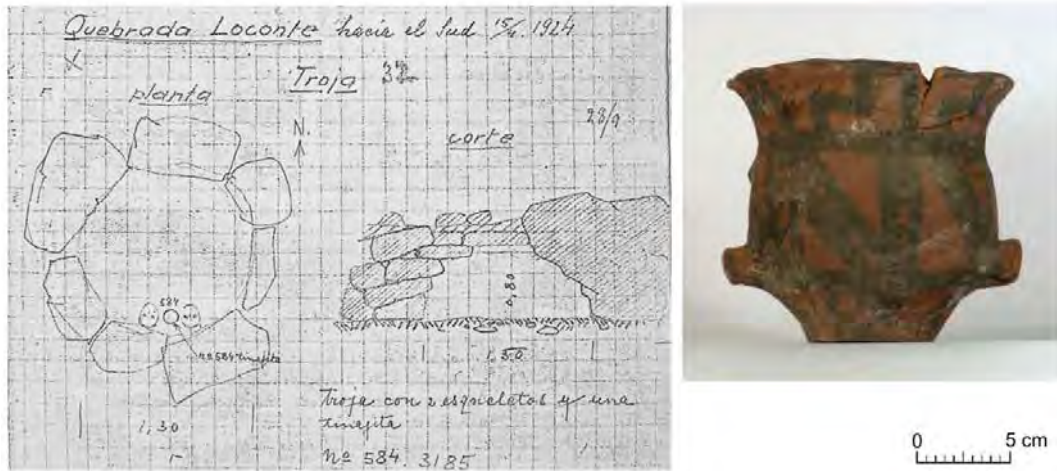 Quebrada Loconte hacia el Sud 15/4. 1924
Troja 32
planta
N.
28/9
corte
584
no 584 tinajita
0,80
1,50
1,30
Troja con 2 esqueletos y una
tinajita
Nº 584. 3185
0 5 cm